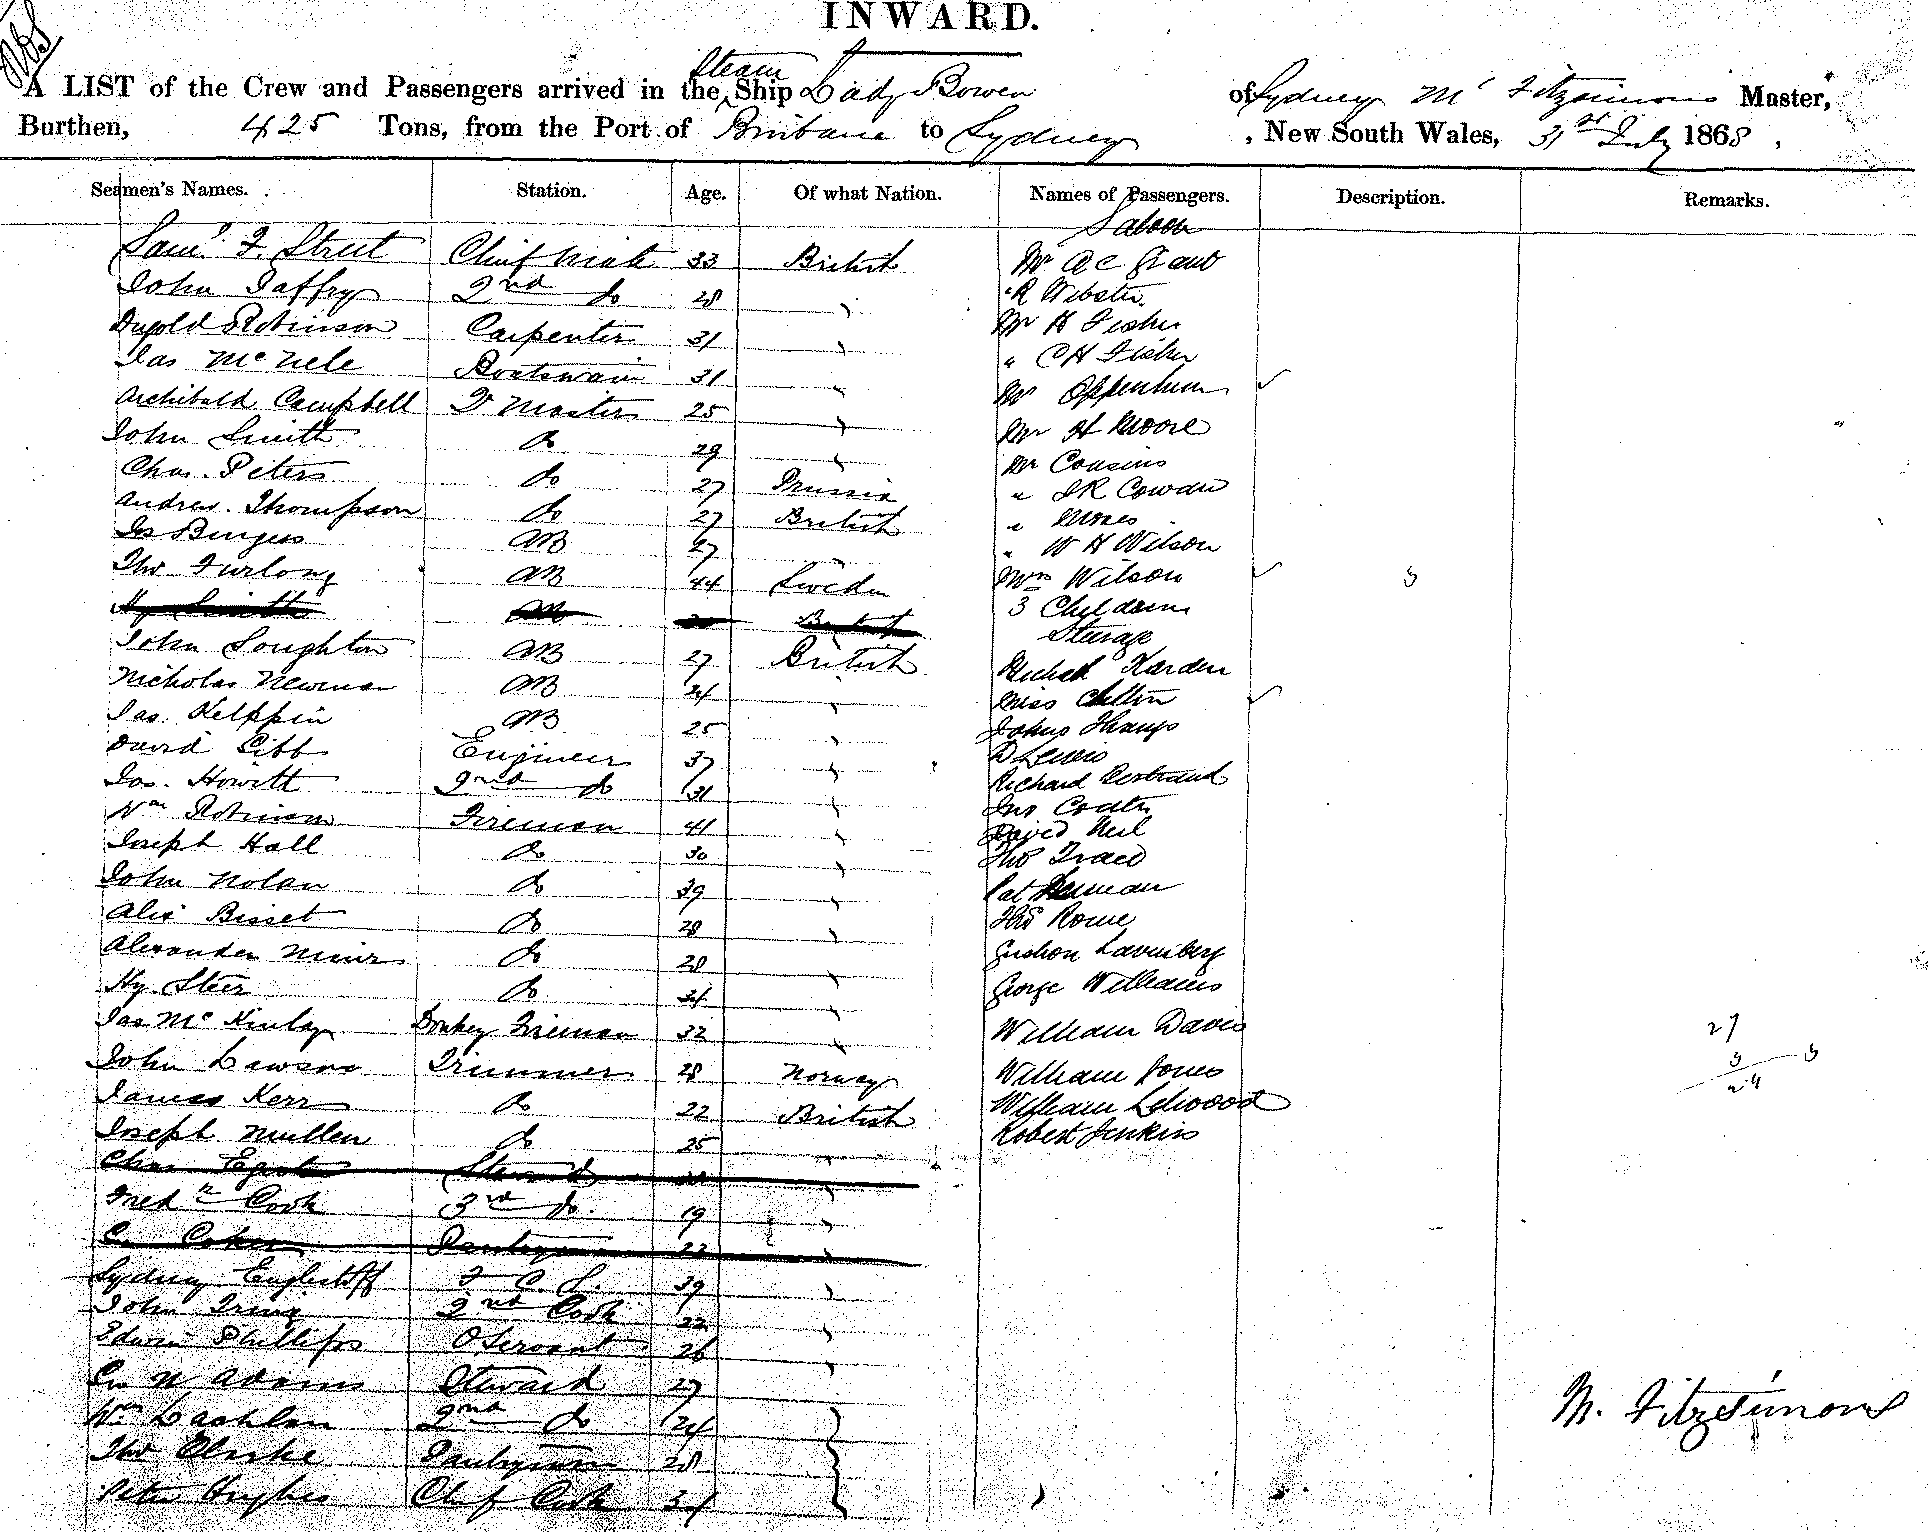 INWARD.
A LIST of the Crew and Passengers arrived in the Steam Ship Lady Bowen of Sydney M Fitzsimons Master,
Burthen, 425 Tons, from the Port of Brisbane to Sydney, New South Wales, 31st July 1868.
Seamen's Names. Station. Age. Of what Nation. Names of Passengers. Description. Remarks.
Saloon
Saml F. Street Chief Mate 33 British Mr A C Grant
John Jaffry 2nd do 28 " " R Webster
Dugold Robinson Carpenter 31 " Mr H Fisher
Jas McNele Boatswain 31 " " C H Fisher
Archibald Campbell Qr Master 25 " Mr Oppenheim
John Smith do 29 " Mr H Moore
Chas. Peters do 27 Prussia Mr Cousins
Andrew Thompson do 27 British " J R Cowan
Jos Burgess AB 27 "
Thos Furlong AB 44 Sweden " W H Wilson
Hy Smith AB British Mrs Wilson
3 Children
Steerage
John Loughton AB 27 British Karden
Nicholas Newman AB 24 " Miss
Jas. Kelppin AB 25 " Johns
David Gibb Engineer 37 " D Lewis
Jos. Howitt 2nd do 31 " Richard Bertrand
Wm Robinson Fireman 41 " Jno
Joseph Hall do 30 " David Neil
John Nolan do 39 " Thos
Alex Bisset do 28 " Pat
Alexander Muir do 28 " Thos Rowe
Hy. Steer do 34 "
George Williams
Jas McKinlay Donkey Fireman 32 " William Davis
John Lawson Trimmer 28 Norway William Jones
James Kerr do 22 British William
Joseph Mullen do 25 " Robert Jenkins
27
3 3
24
Chas Steward "
Fredk Cook 3rd do. 19 "
Pantryman 22 "
Sydney F C S. 39 "
John 2nd Cook 22 "
Edwin Phillips O Servant 26 "
Adams Steward 27
Wm Lachlan 2nd do 24
Thos Clarke Pantryman 28
Peter Hughes Chief Cook 34
M. Fitzsimons